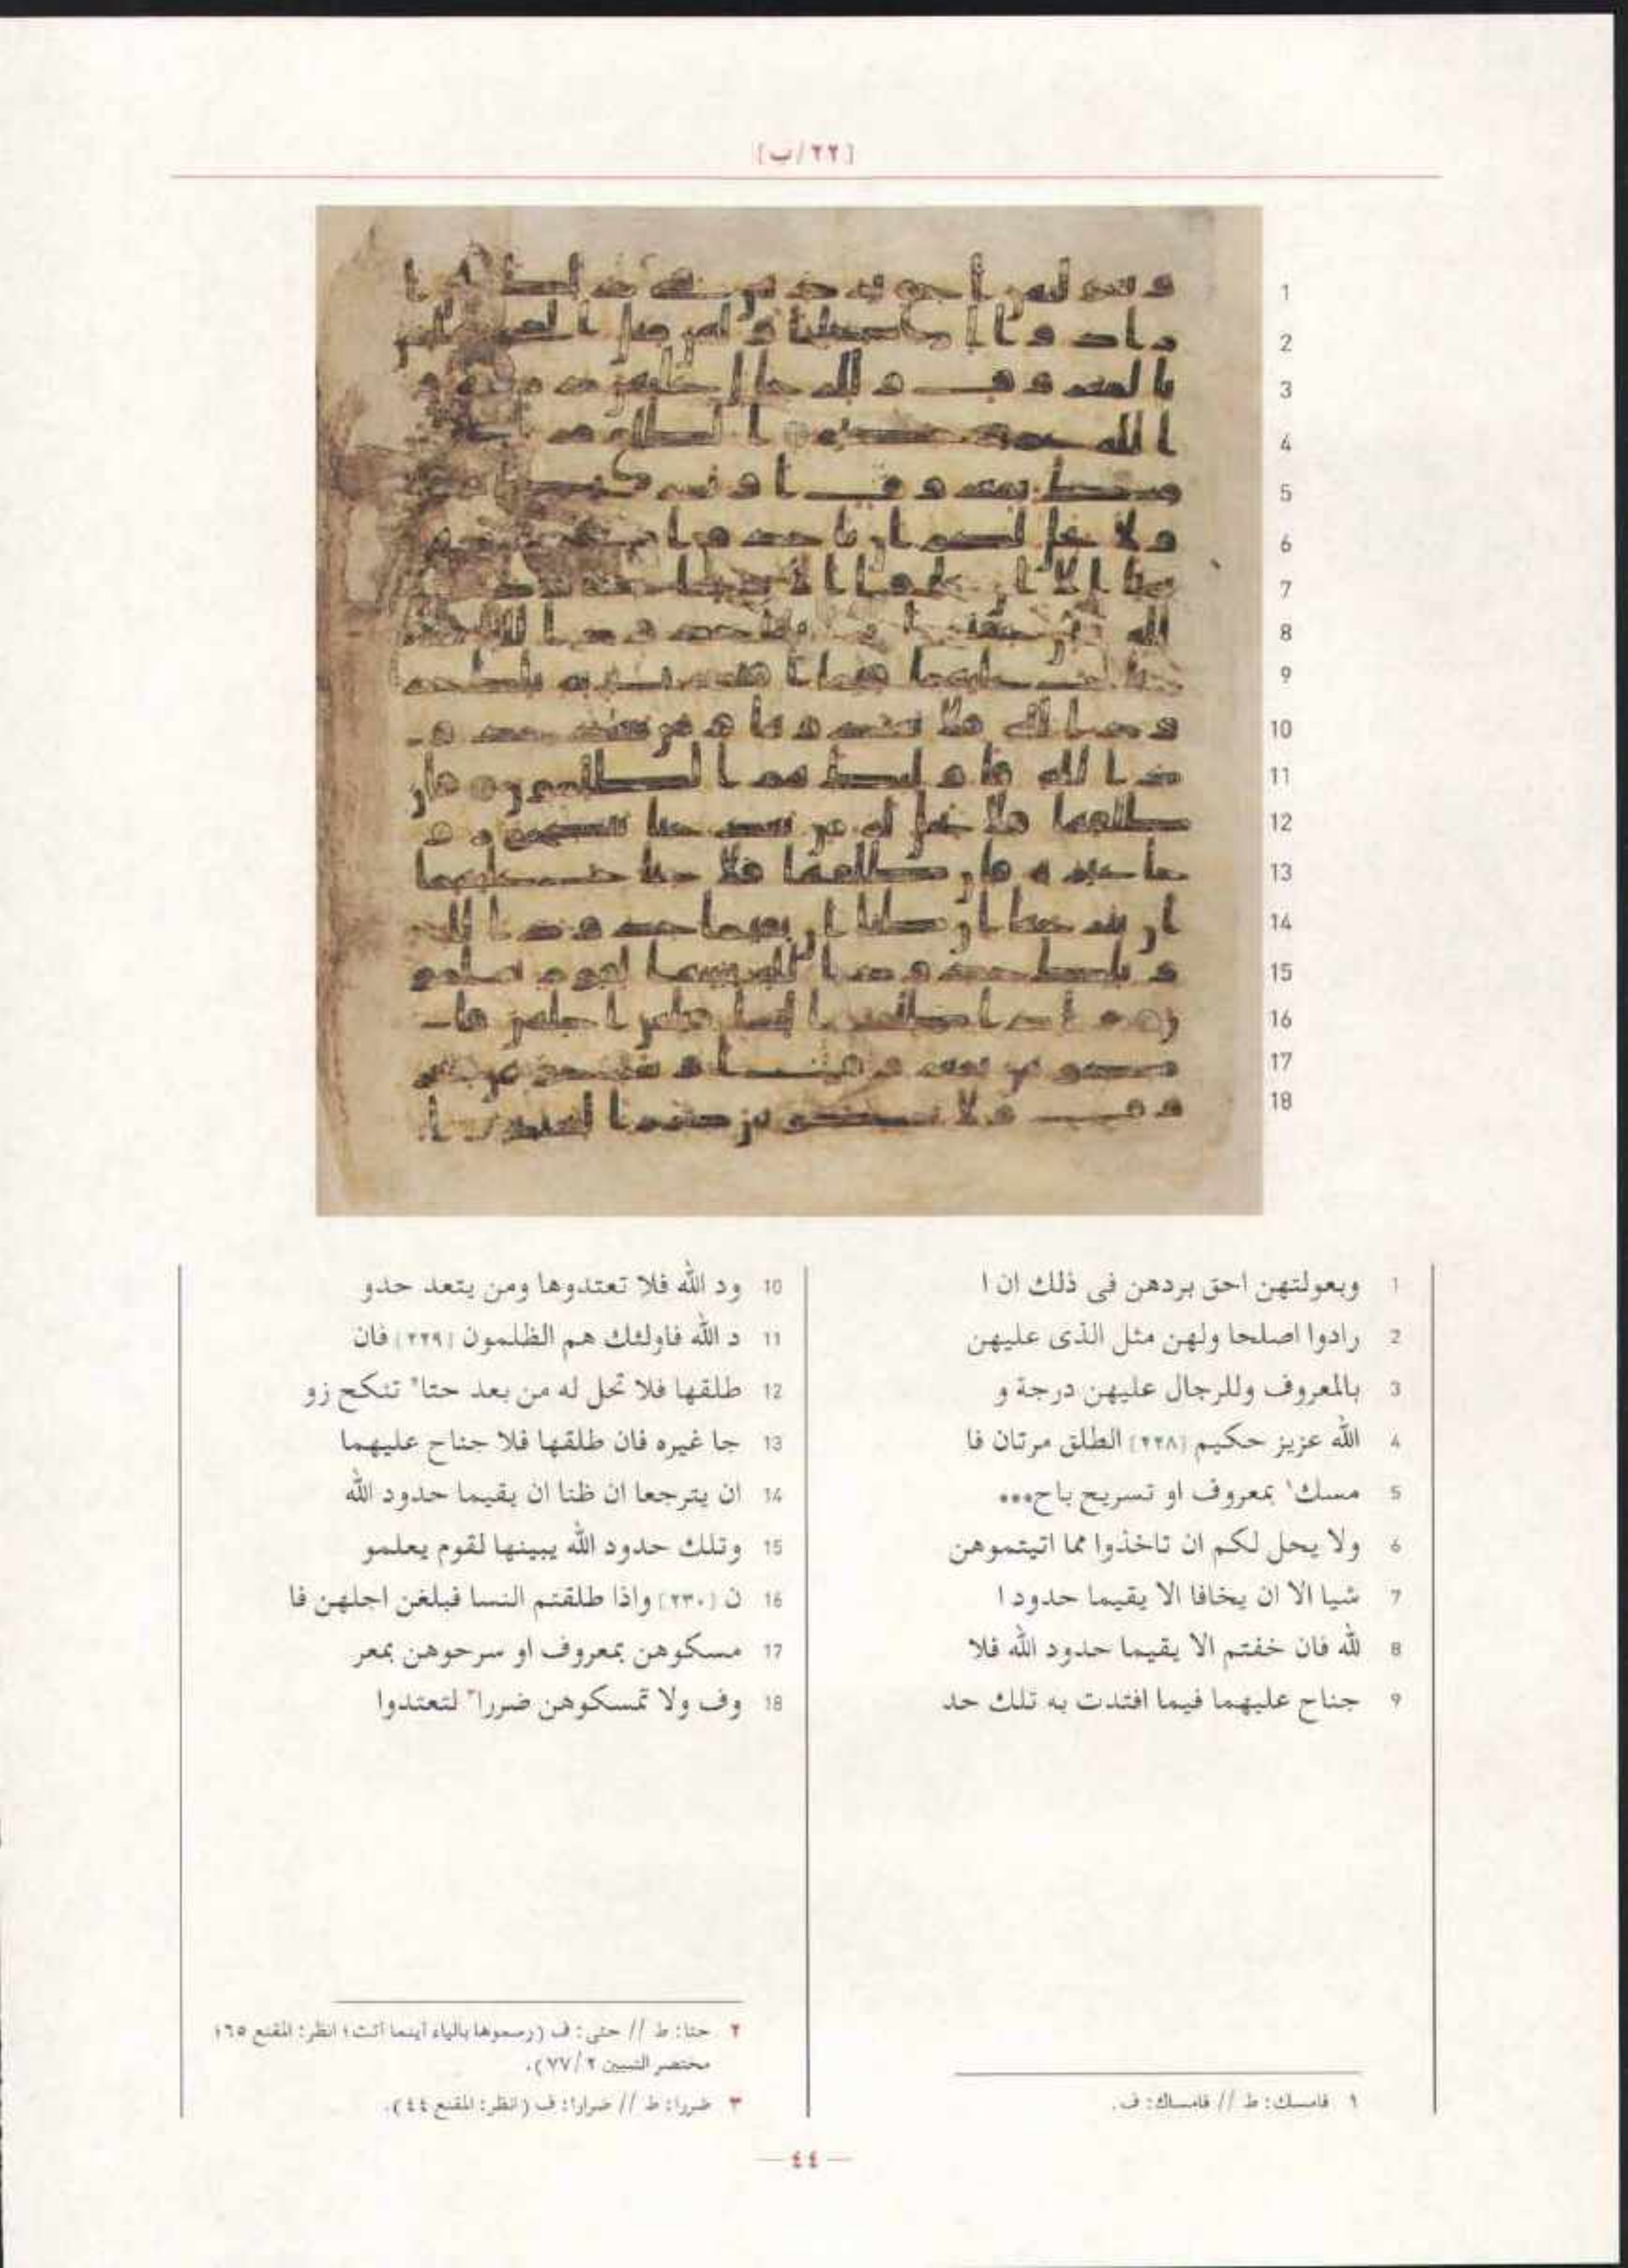 [٢٢/ب]
1 وبعولتهن احق بردهن فى ذلك ان ا
2 رادوا اصلحا ولهن مثل الذى عليهن
3 بالمعروف وللرجال عليهن درجة و
4 الله عزيز حكيم [٢٢٨] الطلق مرتان فا
5 مسك١ بمعروف او تسريح باح...
6 ولا يحل لكم ان تاخذوا مما اتيتموهن
7 شيا الا ان يخافا الا يقيما حدود ا
8 لله فان خفتم الا يقيما حدود الله فلا
9 جناح عليهما فيما افتدت به تلك حد
10 ود الله فلا تعتدوها ومن يتعد حدو
11 د الله فاولئك هم الظلمون [٢٢٩] فان
12 طلقها فلا تحل له من بعد حتا٢ تنكح زو
13 جا غيره فان طلقها فلا جناح عليهما
14 ان يترجعا ان ظنا ان يقيما حدود الله
15 وتلك حدود الله يبينها لقوم يعلمو
16 ن [٢٣٠] واذا طلقتم النسا فبلغن اجلهن فا
17 مسكوهن بمعروف او سرحوهن بمعر
18 وف ولا تمسكوهن ضررا٣ لتعتدوا
١ فامسك: ط // فامساك: ف.
٢ حتا: ط // حتى: ف (رسموها بالياء أينما أتت؛ انظر: المقنع ٦٥؛
مختصر التبيين ٢/٧٧).
٣ ضررا: ط // ضرارا: ف (انظر: المقنع ٤٤).
— ٤٤ —